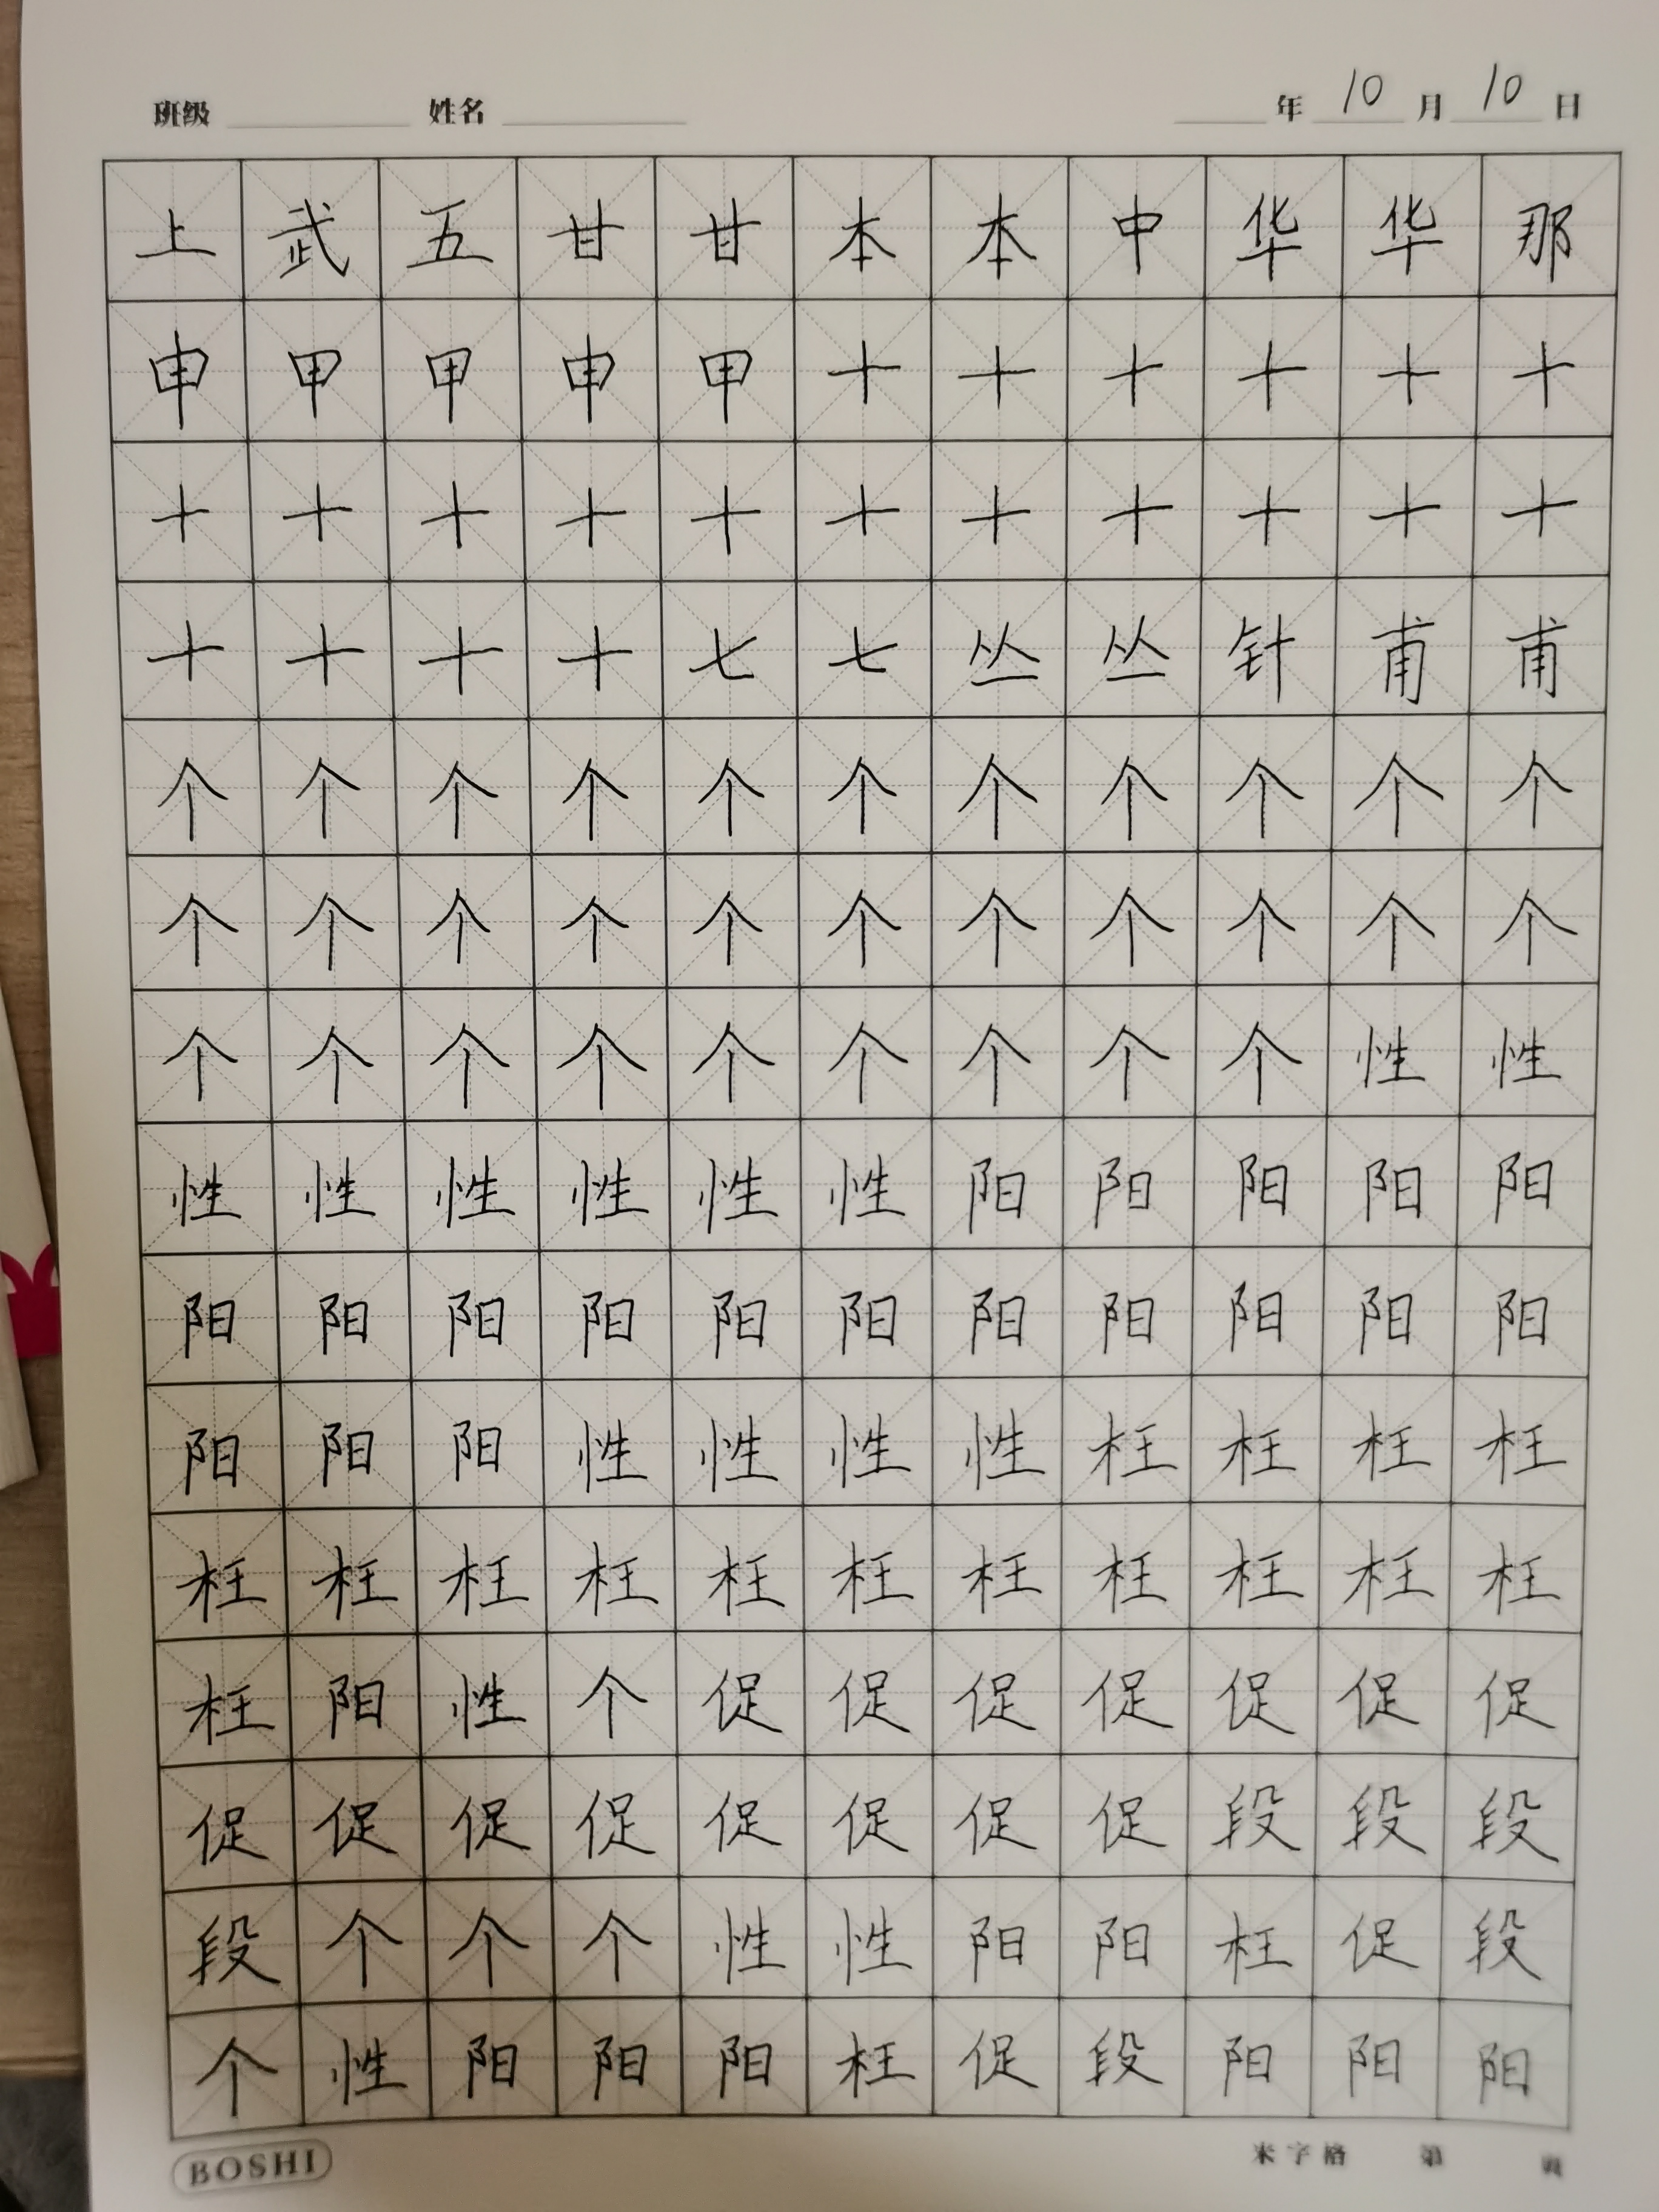 班级 姓名 年 10 月 10 日
上 武 五 甘 甘 本 本 中 华 华 那
申 甲 甲 申 甲 十 十 十 十 十 十
十 十 十 十 十 十 十 十 十 十 十
十 十 十 十 七 七 丛 丛 针 甫 甫
个 个 个 个 个 个 个 个 个 个 个
个 个 个 个 个 个 个 个 个 个 个
个 个 个 个 个 个 个 个 个 性 性
性 性 性 性 性 性 阳 阳 阳 阳 阳
阳 阳 阳 阳 阳 阳 阳 阳 阳 阳 阳
阳 阳 阳 性 性 性 性 枉 枉 枉 枉
枉 枉 枉 枉 枉 枉 枉 枉 枉 枉 枉
枉 阳 性 个 促 促 促 促 促 促 促
促 促 促 促 促 促 促 促 段 段 段
段 个 个 个 性 性 阳 阳 枉 促 段
个 性 阳 阳 阳 枉 促 段 阳 阳 阳
BOSHI 米字格 第 页